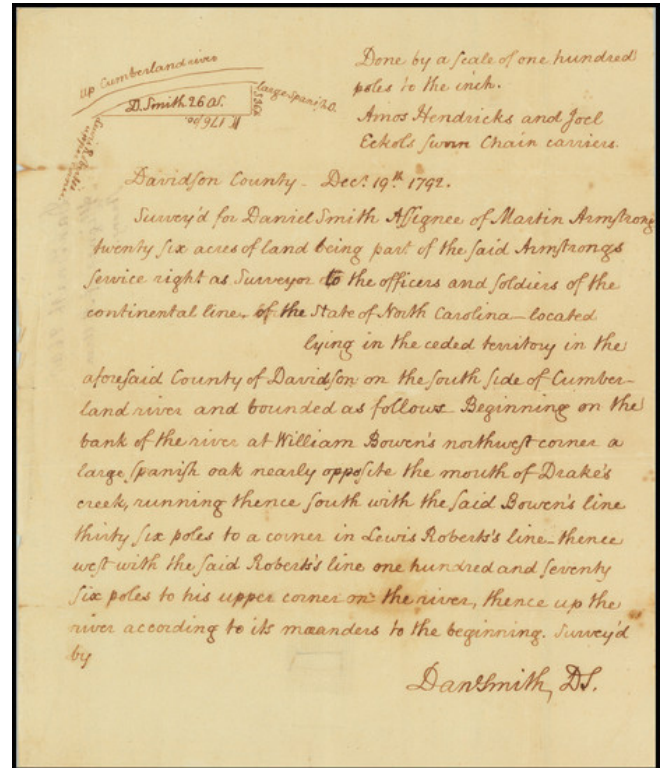 up Cumberland river
D. Smith 26 as.
large Spani. O.
S 36
W 176 po.
Lewis Roberts's upper corner
Done by a scale of one hundred
poles to the inch.
Amos Hendricks and Joel
Eckols sworn Chain carriers.
Davidson County - Decr. 19th 1792.
Survey'd for Daniel Smith Assignee of Martin Armstrong
twenty six acres of land being part of the said Armstrongs
service right as Surveyor to the officers and soldiers of the
continental line, of the State of North Carolina - located
lying in the ceded territory in the
aforesaid County of Davidson on the south side of Cumber-
land river and bounded as follows Beginning on the
bank of the river at William Bowen's northwest corner a
large spanish oak nearly opposite the mouth of Drake's
creek, running thence south with the said Bowen's line
thirty six poles to a corner in Lewis Roberts's line - thence
west with the said Roberts's line one hundred and seventy
six poles to his upper corner on the river, thence up the
river according to its maanders to the beginning. Survey'd
by
Danl. Smith, DS.